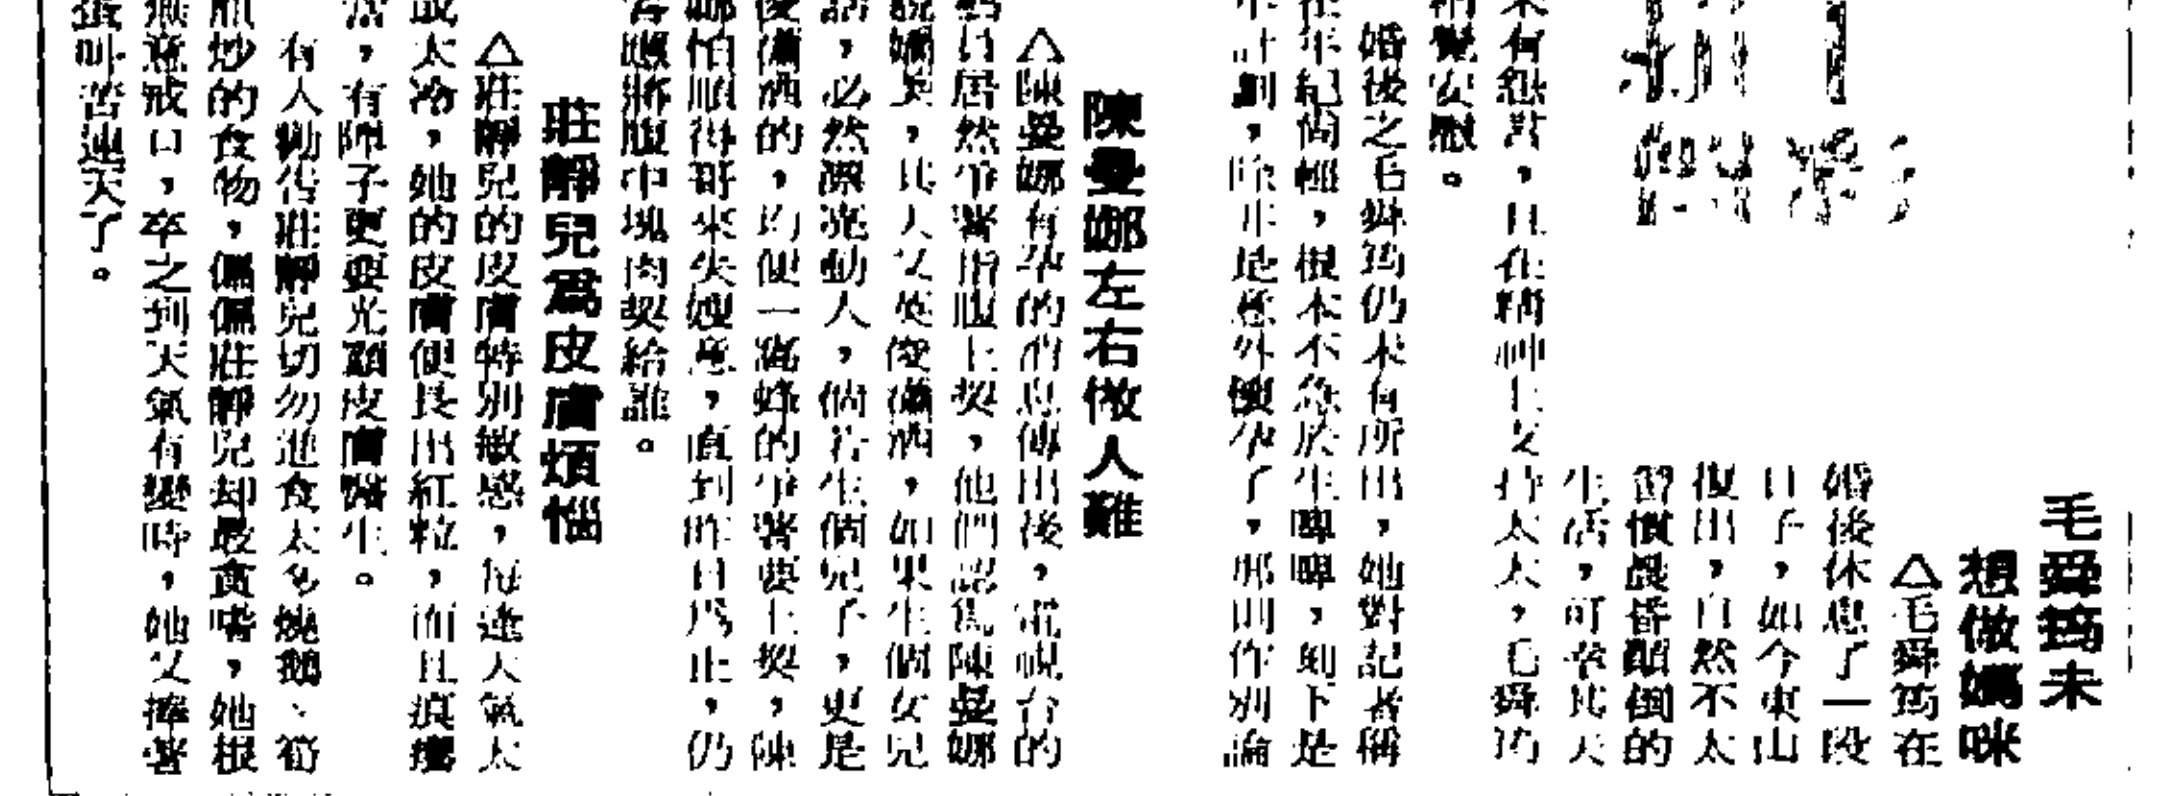 毛舜筠未
想做媽咪
△毛舜筠在
婚後休息了一段
日子，如今東山
復出，自然不太
習慣晨昏顛倒的
生活，可幸其夫
未有怨言，且在精神上支持太太，毛舜筠
稍覺安慰。
婚後之毛舜筠仍未有所出，她對記者稱
年紀尚輕，根本不急於生啤啤，刻下是
計劃，除非是意外懷孕了，那則作別論
陳曼娜左右做人難
△陳曼娜有孕的消息傳出後，電視台的
藝員居然爭著指腹上契，他們認爲陳曼娜
貌媚美，其夫又英俊瀟洒，如果生個女兒
話，必然漂亮動人，倘若生個兒子，更是
俊瀟洒的，均便一窩蜂的爭著要上契，陳
娜怕順得哥來失嫂意，直到昨日爲止，仍
答應將腹中塊肉契給誰。
莊靜兒爲皮膚煩惱
△莊靜兒的皮膚特別敏感，每逢天氣太
或太冷，她的皮膚便長出紅粒，而且痕癢
，有陣子更要光顧皮膚醫生。
有人勸告莊靜兒切勿進食太多燒鵝、筍
煎炒的食物，偏偏莊靜兒却最貪嘴，她根
無意戒口，卒之到天氣有變時，她又捧著
蛋叫苦連天了。